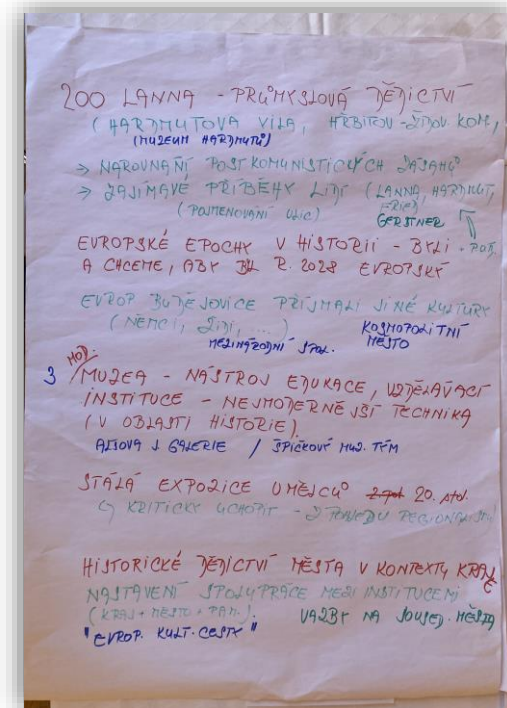 200 LANNA - PRŮMYSLOVÁ DĚDICTVÍ
(HARDMUTOVA VILA, HŘBITOV - ŽIDOV. KOM,
(MUZEUM HARDMUTŮ)
→ NAROVNÁNÍ POSTKOMUNISTICKÝCH ZÁSAHŮ
→ ZAJÍMAVÉ PŘÍBĚHY LIDÍ (LANNA, HARDMUT,
(POJMENOVÁNÍ ULIC)
GERSTNER
EVROPSKÉ EPOCHY V HISTORII - BYLI
A CHCEME, ABY BYL R. 2028 EVROPSKÝ
EVROP. BUDĚJOVICE PŘIJMALI JINÉ KULTURY
(NĚMCI, ŽIDI, ....)
KOSMOPOLITNÍ
MĚSTO
MEZINÁRODNÍ SPOL.
3 MOD.
MUZEA - NÁSTROJ EDUKACE, VZDĚLÁVACÍ
INSTITUCE - NEJMODERNĚJŠÍ TECHNIKA
(V OBLASTI HISTORIE)
ALŠOVA J GALERIE / ŠPIČKOVÝ MUZ. TÝM
STÁLÁ EXPOZICE UMĚLCŮ 20. stol.
↳ KRITICKY UCHOPIT - Z POHLEDU REGIONALISTŮ
HISTORICKÉ DĚDICTVÍ MĚSTA V KONTEXTU KRAJE
NASTAVENÍ SPOLUPRÁCE MEZI INSTITUCEMI
(KRAJ + MĚSTO + PAM.) VAZBY NA SOUSED. MĚSTA
"EVROP. KULT. CESTY"